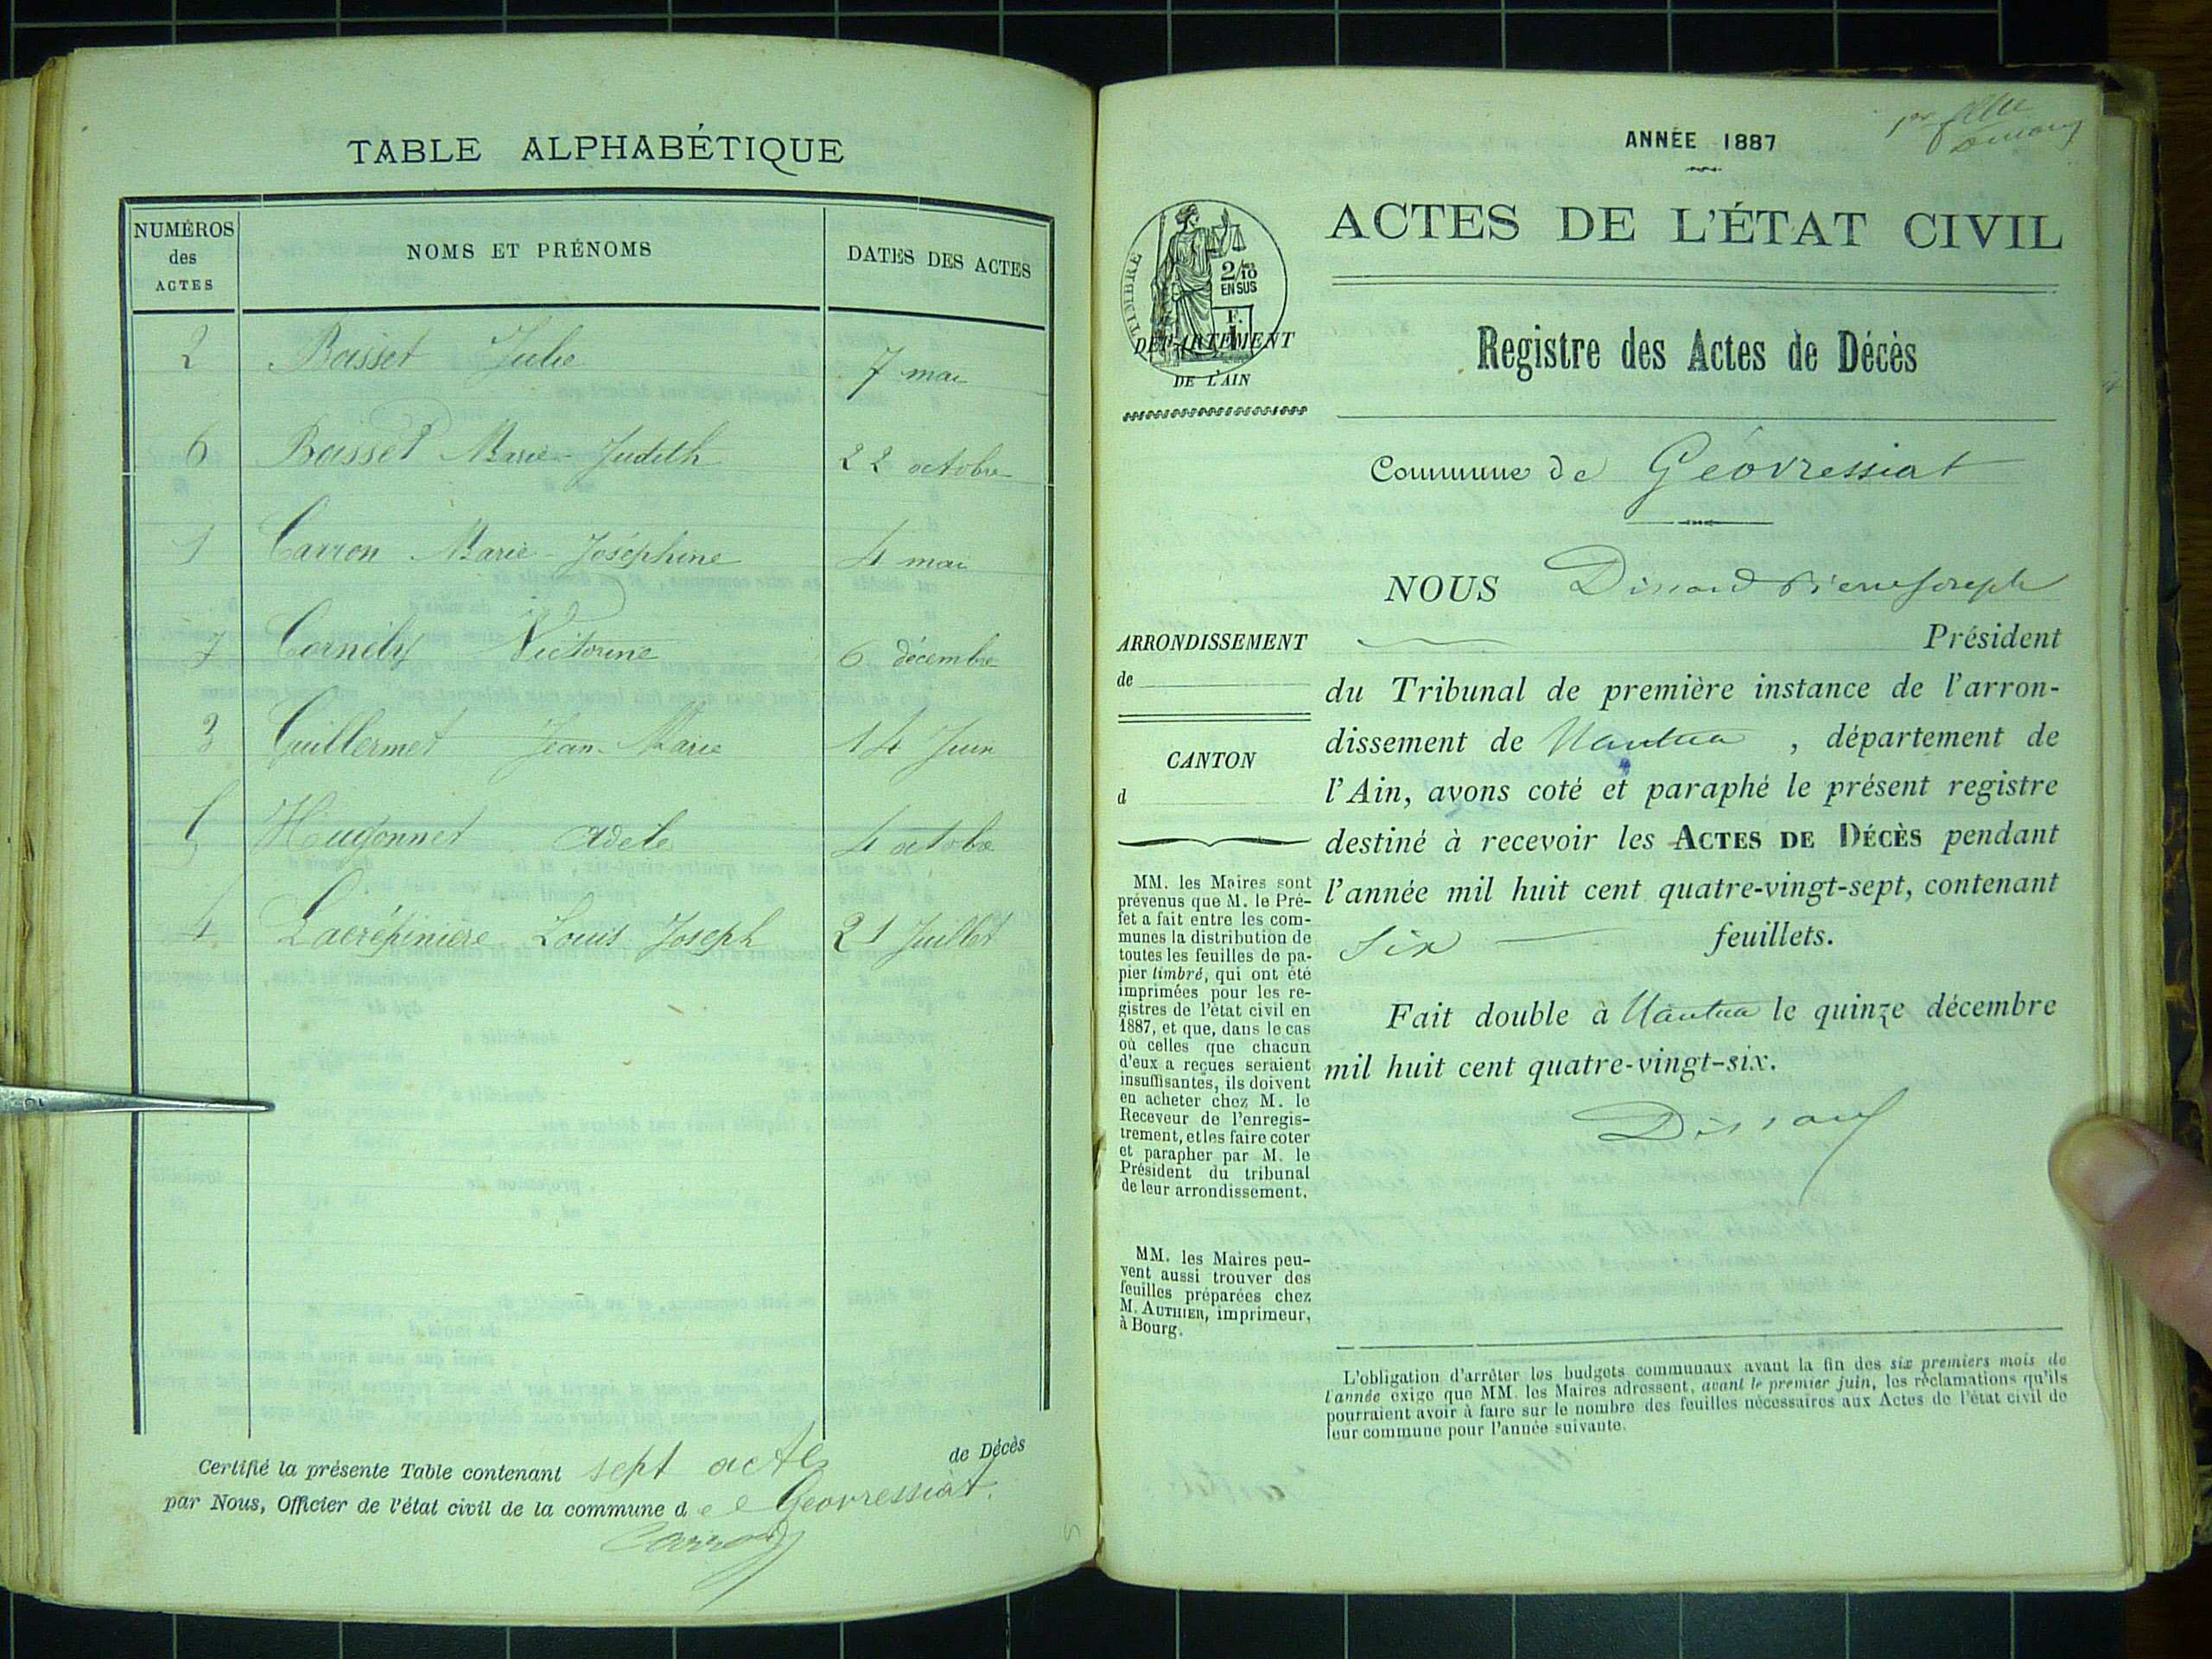 TABLE ALPHABÉTIQUE
NUMÉROS des ACTES
NOMS ET PRÉNOMS
DATES DES ACTES
2 Basset Julie 7 mai
6 Basset Marie-Judith 22 octobre
1 Carron Marie-Joséphine 4 mai
7 Cornély Victorine 6 décembre
3 Guillermet Jean-Marie 14 Juin
5 Hugonnet Adele 4 octobre
4 Lacrépinière Louis Joseph 21 Juillet
Certifié la présente Table contenant sept actes de Décès
par Nous, Officier de l'état civil de la commune de Geovressiat.
Carron
ANNÉE 1887
ACTES DE L'ÉTAT CIVIL
TIMBRE
2/10
EN SUS
F.
DÉPARTEMENT
DE L'AIN
Registre des Actes de Décès
Commune de Géovressiat
NOUS Pierre Joseph
Président
du Tribunal de première instance de l'arron-
dissement de Nantua, département de
l'Ain, avons coté et paraphé le présent registre
destiné à recevoir les ACTES DE DÉCÈS pendant
l'année mil huit cent quatre-vingt-sept, contenant
Six feuillets.
Fait double à Nantua le quinze décembre
mil huit cent quatre-vingt-six.
ARRONDISSEMENT
de
CANTON
d
MM. les Maires sont
prévenus que M. le Pré-
fet a fait entre les com-
munes la distribution de
toutes les feuilles de pa-
pier timbré, qui ont été
imprimées pour les re-
gistres de l'état civil en
1887, et que, dans le cas
où celles que chacun
d'eux a reçues seraient
insuffisantes, ils doivent
en acheter chez M. le
Receveur de l'enregis-
trement, et les faire coter
et parapher par M. le
Président du tribunal
de leur arrondissement.
MM. les Maires peu-
vent aussi trouver des
feuilles préparées chez
M. AUTHIER, imprimeur,
à Bourg.
L'obligation d'arrêter les budgets communaux avant la fin des six premiers mois de
l'année exige que MM. les Maires adressent, avant le premier juin, les réclamations qu'ils
pourraient avoir à faire sur le nombre des feuilles nécessaires aux Actes de l'état civil de
leur commune pour l'année suivante.